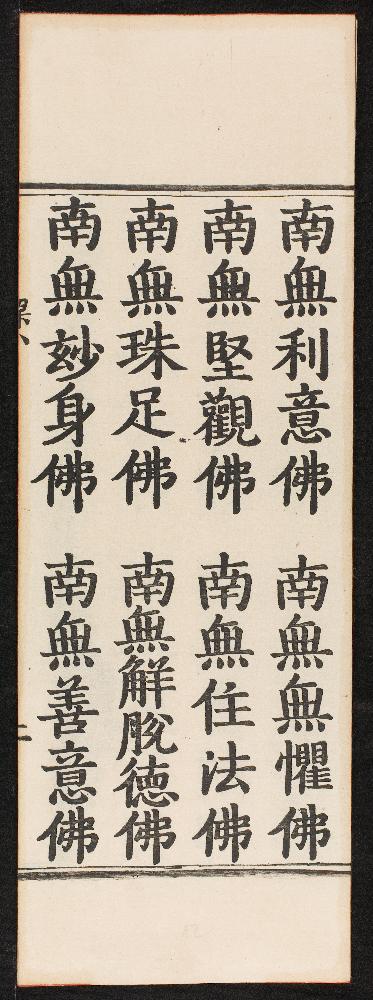 南無利意佛　南無無懼佛
南無堅觀佛　南無住法佛
南無珠足佛　南無解脫德佛
南無玅身佛　南無善意佛